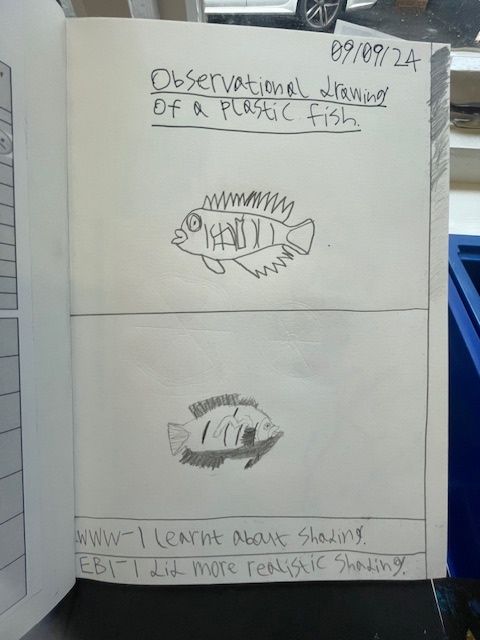 09/09/24
Observational drawing
Of a plastic fish.
WWW-I learnt about shading.
EBI-I did more realistic shading.